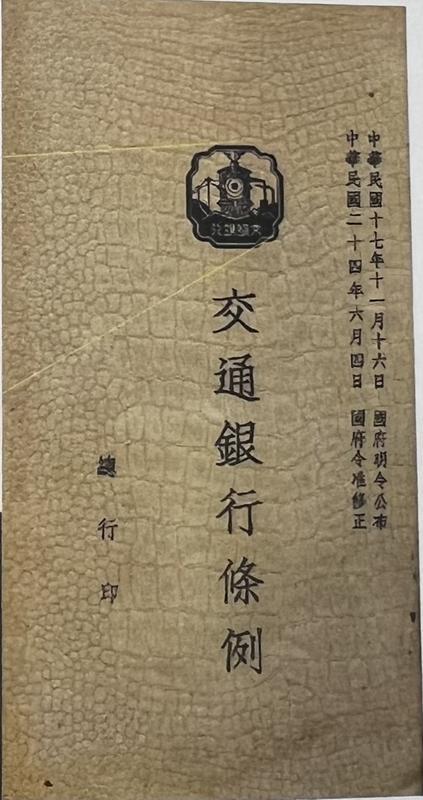 中華民國十七年十一月十六日 國府明令公布
中華民國二十四年六月四日 國府令准修正
交通銀行條例
總行印